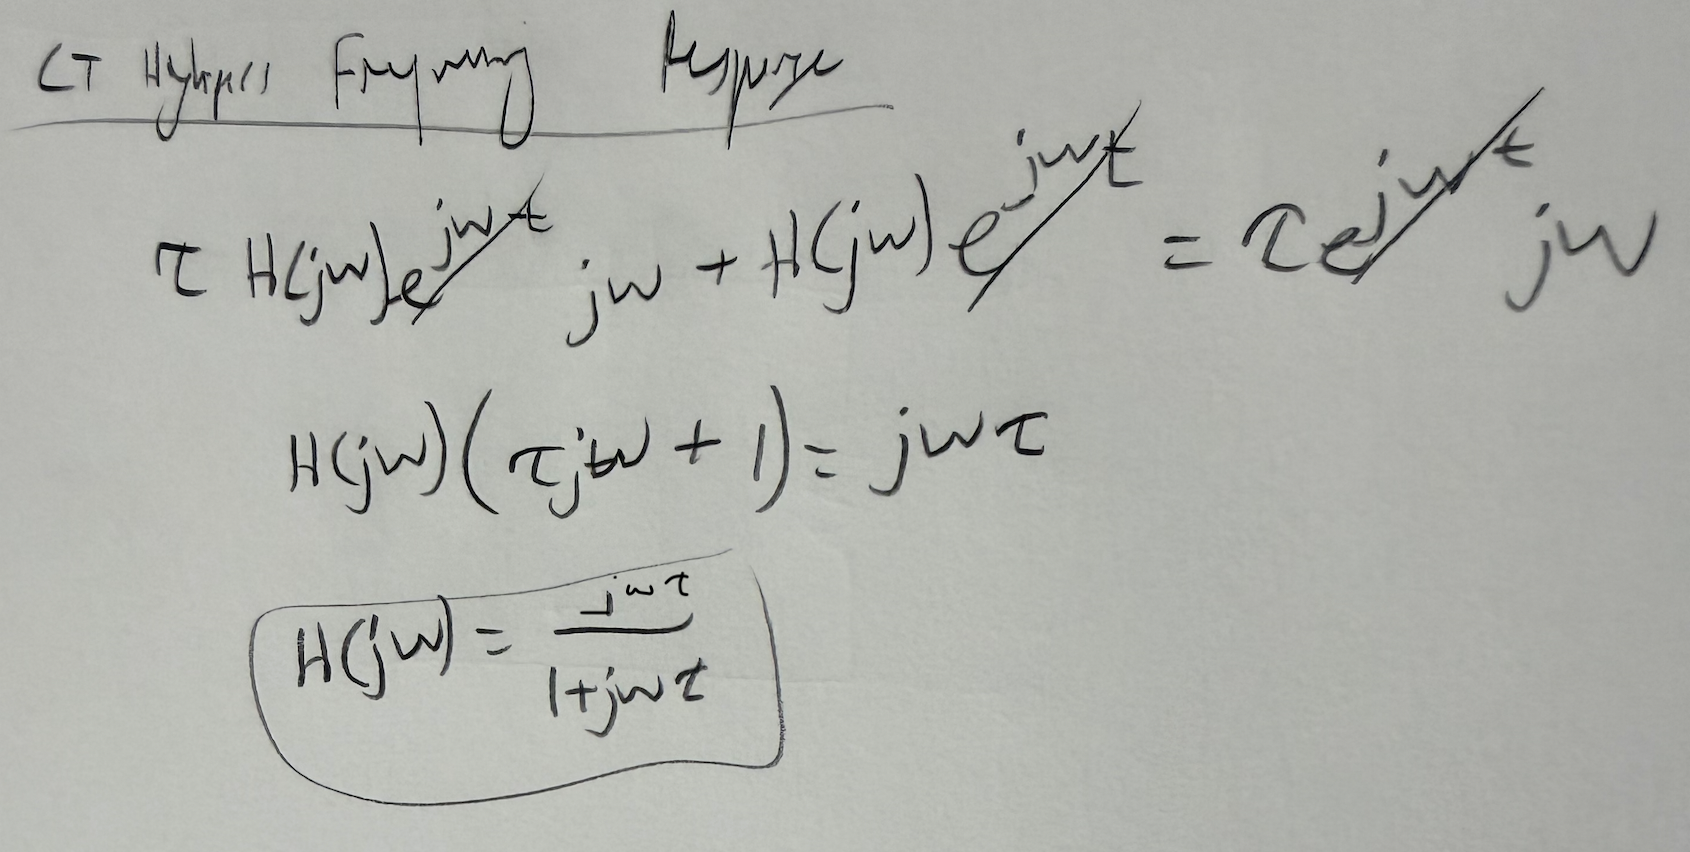 CT Highpass Frequency Response
τ H(jω)e^{jωt} jω + H(jω) e^{jωt} = τ e^{jωt} jω
H(jω)(τjω + 1) = jωτ
H(jω) = jωτ / 1+jωτ